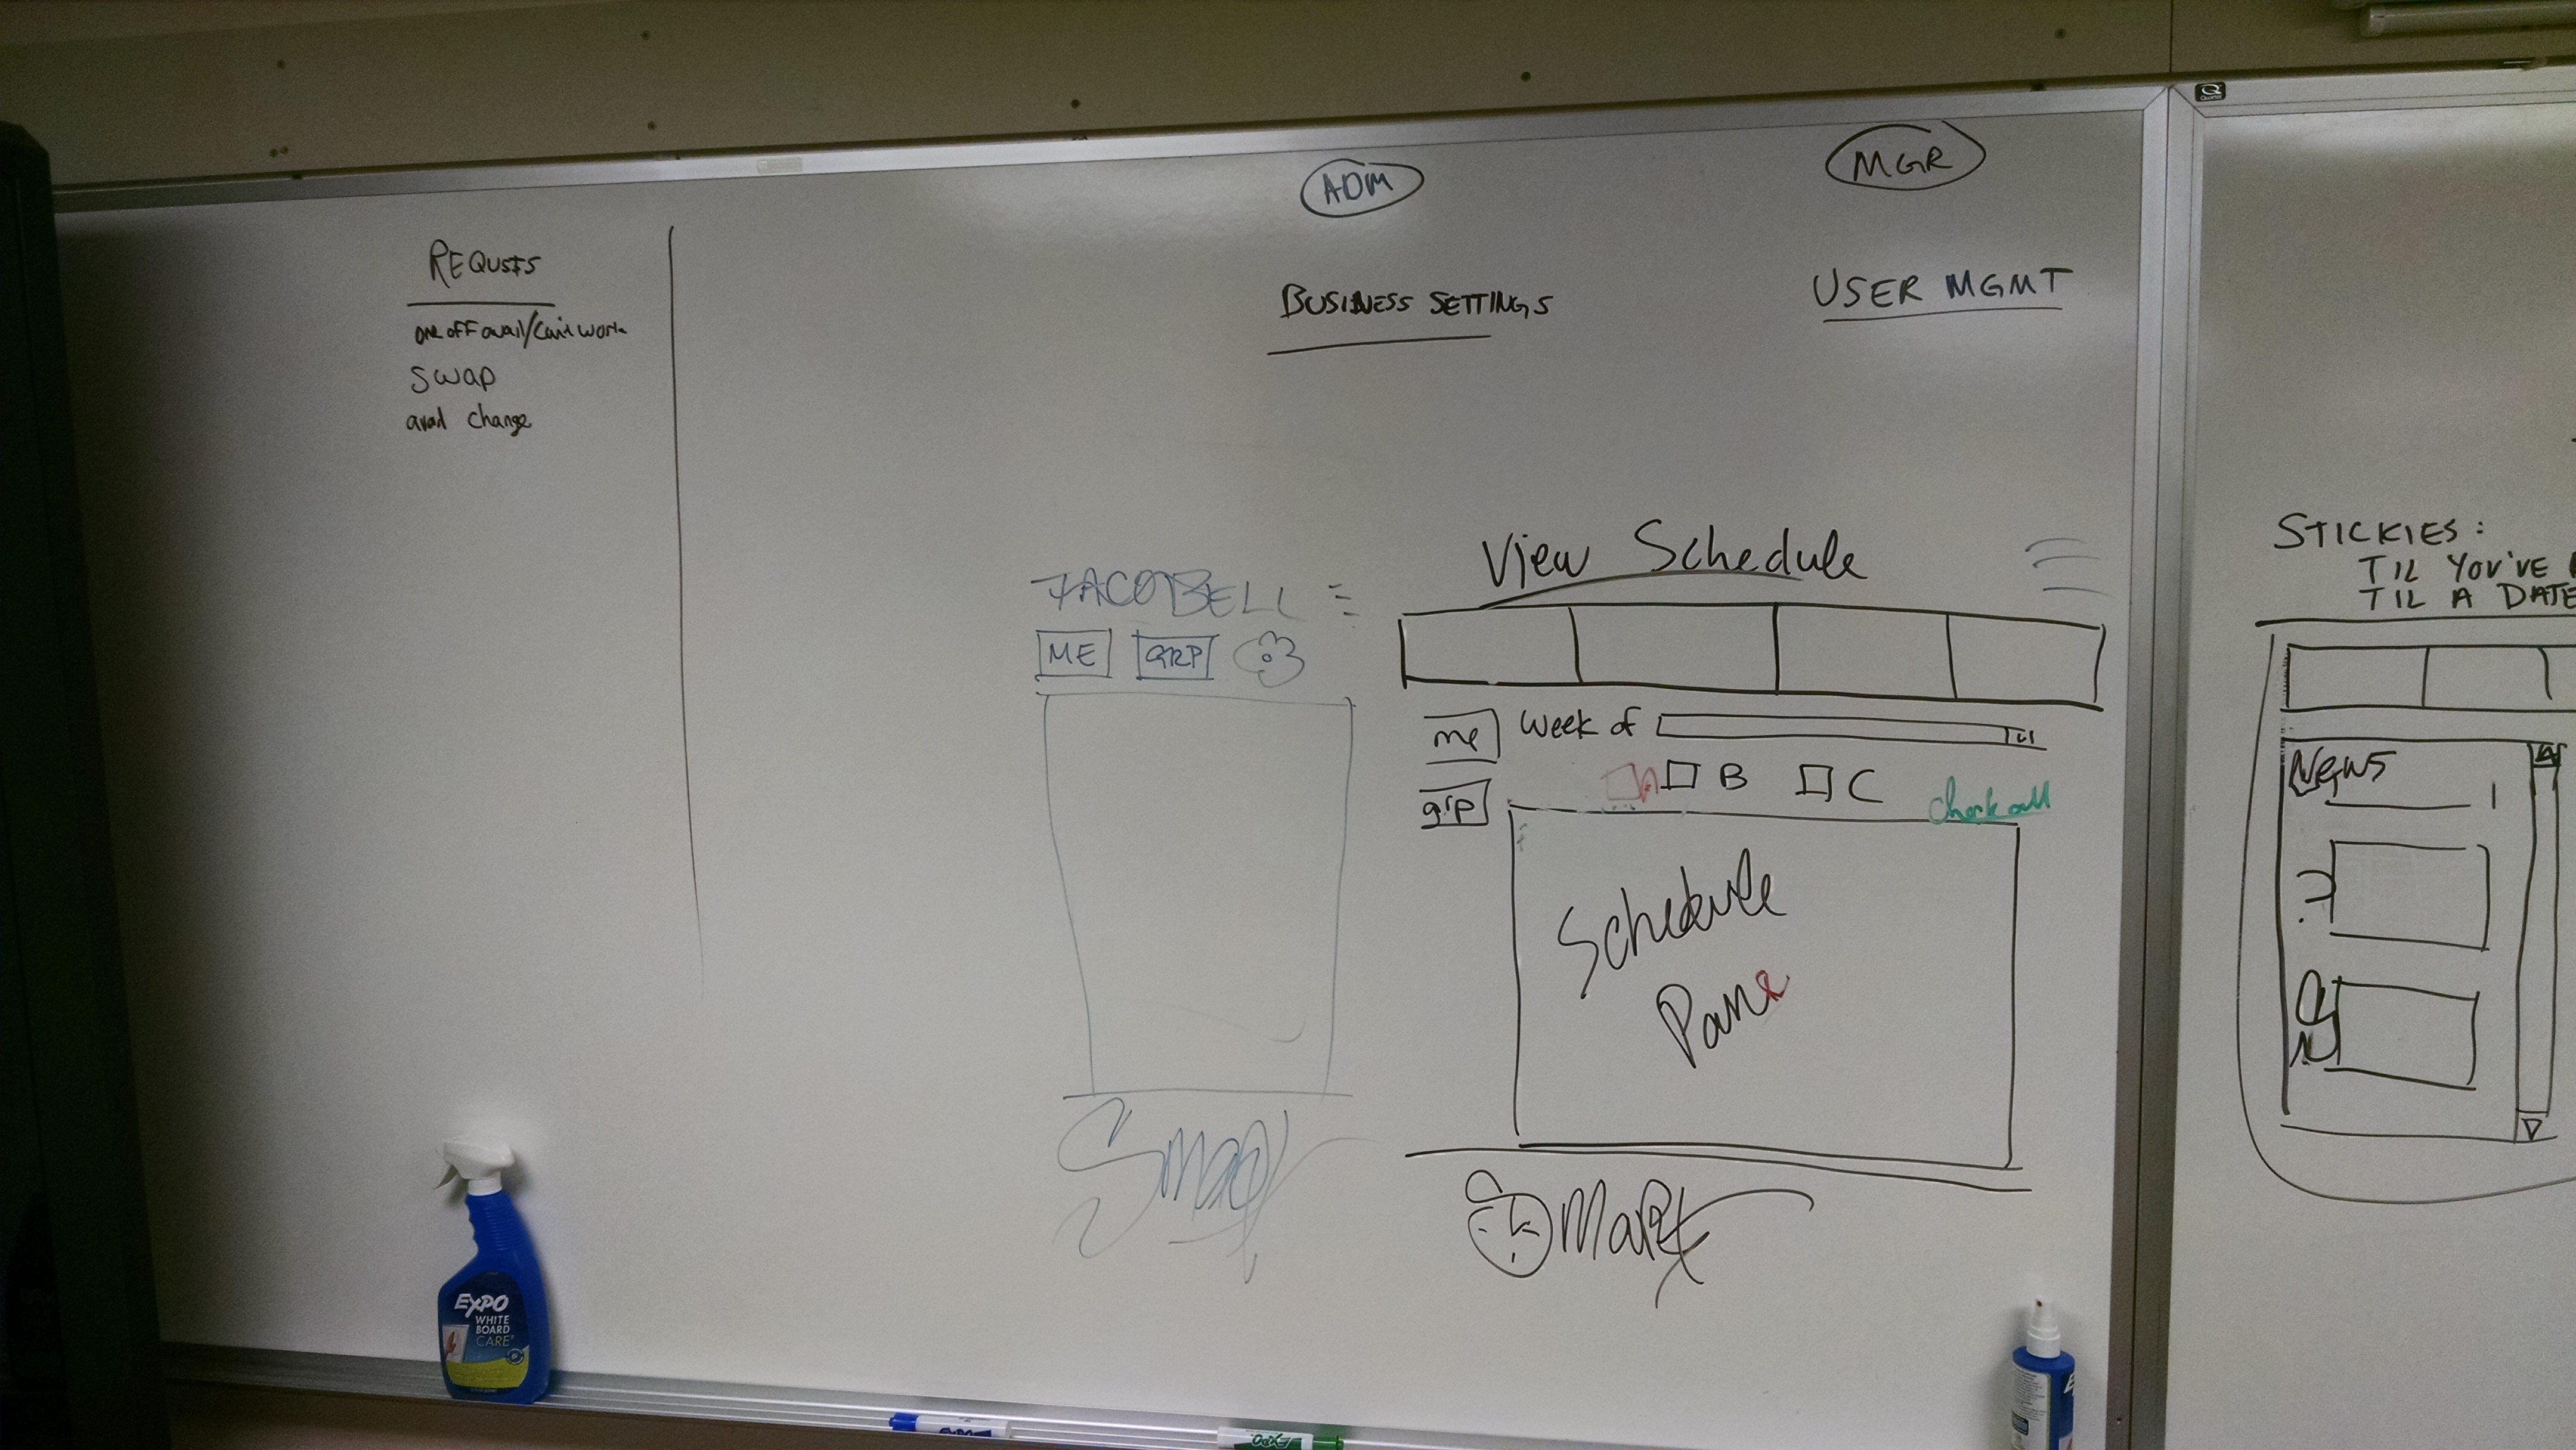 REQUSTS
one off avail/can't work
swap
avail change
ADM
BUSINESS SETTINGS
MGR
USER MGMT
TACOBELL
ME GRP
SMART
View Schedule
me week of
grp A B C check all
Schedule
Pane
SMART
STICKIES:
TIL YOU'VE
TIL A DATE
News
EXPO
WHITE
BOARD
CARE
EXPO
EXPO